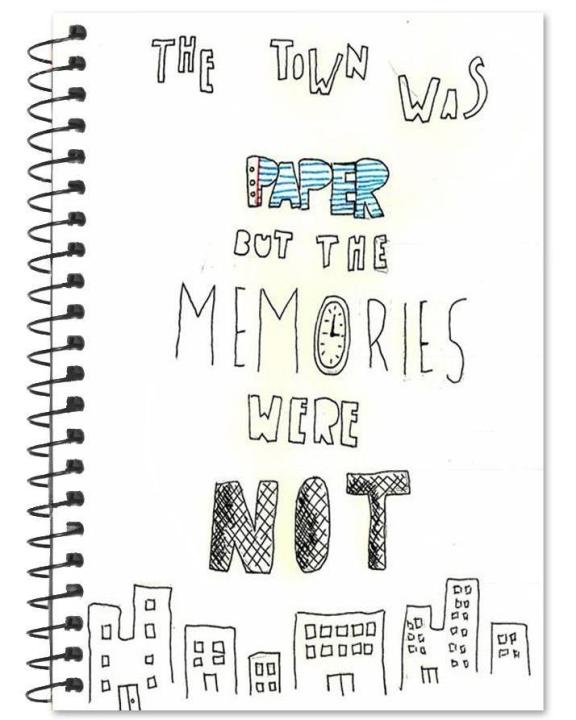 THE TOWN WAS
PAPER
BUT THE
MEMORIES
WERE
NOT